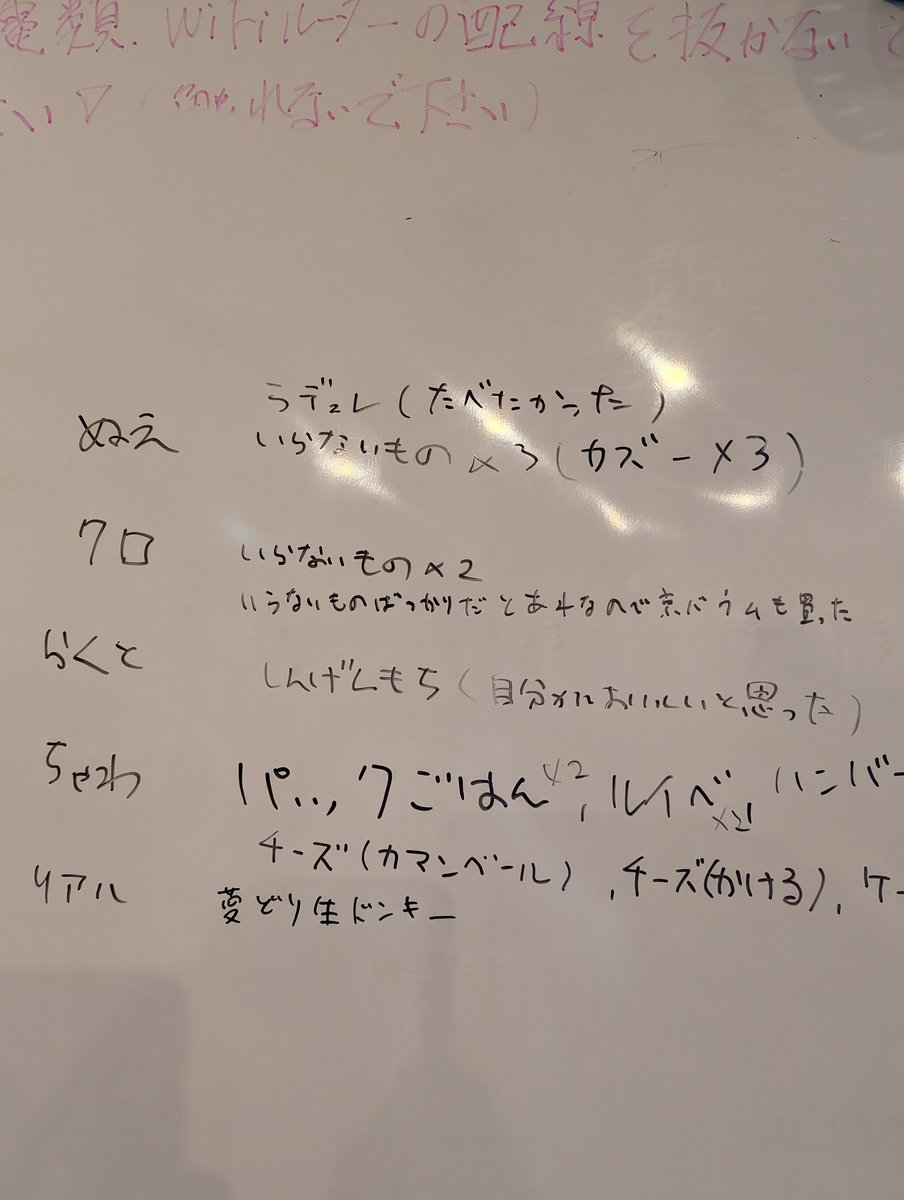 電類.WiFiルーターの配線を抜かない
さい▽(触れないで下さい)
ラデュレ(たべたかった)
ぬえ いらないもの×3(カズー×3)
クロ いらないもの×2
いらないものばっかりだとあれなので京バウムも買った
らくと しんげんもち(自分がおいしいと思った)
ちゃわ パックごはん×2,ルイベ×2!ハンバー
チーズ(カマンベール),チーズ(かける),ケー
リアル 夢どり生ドンキー